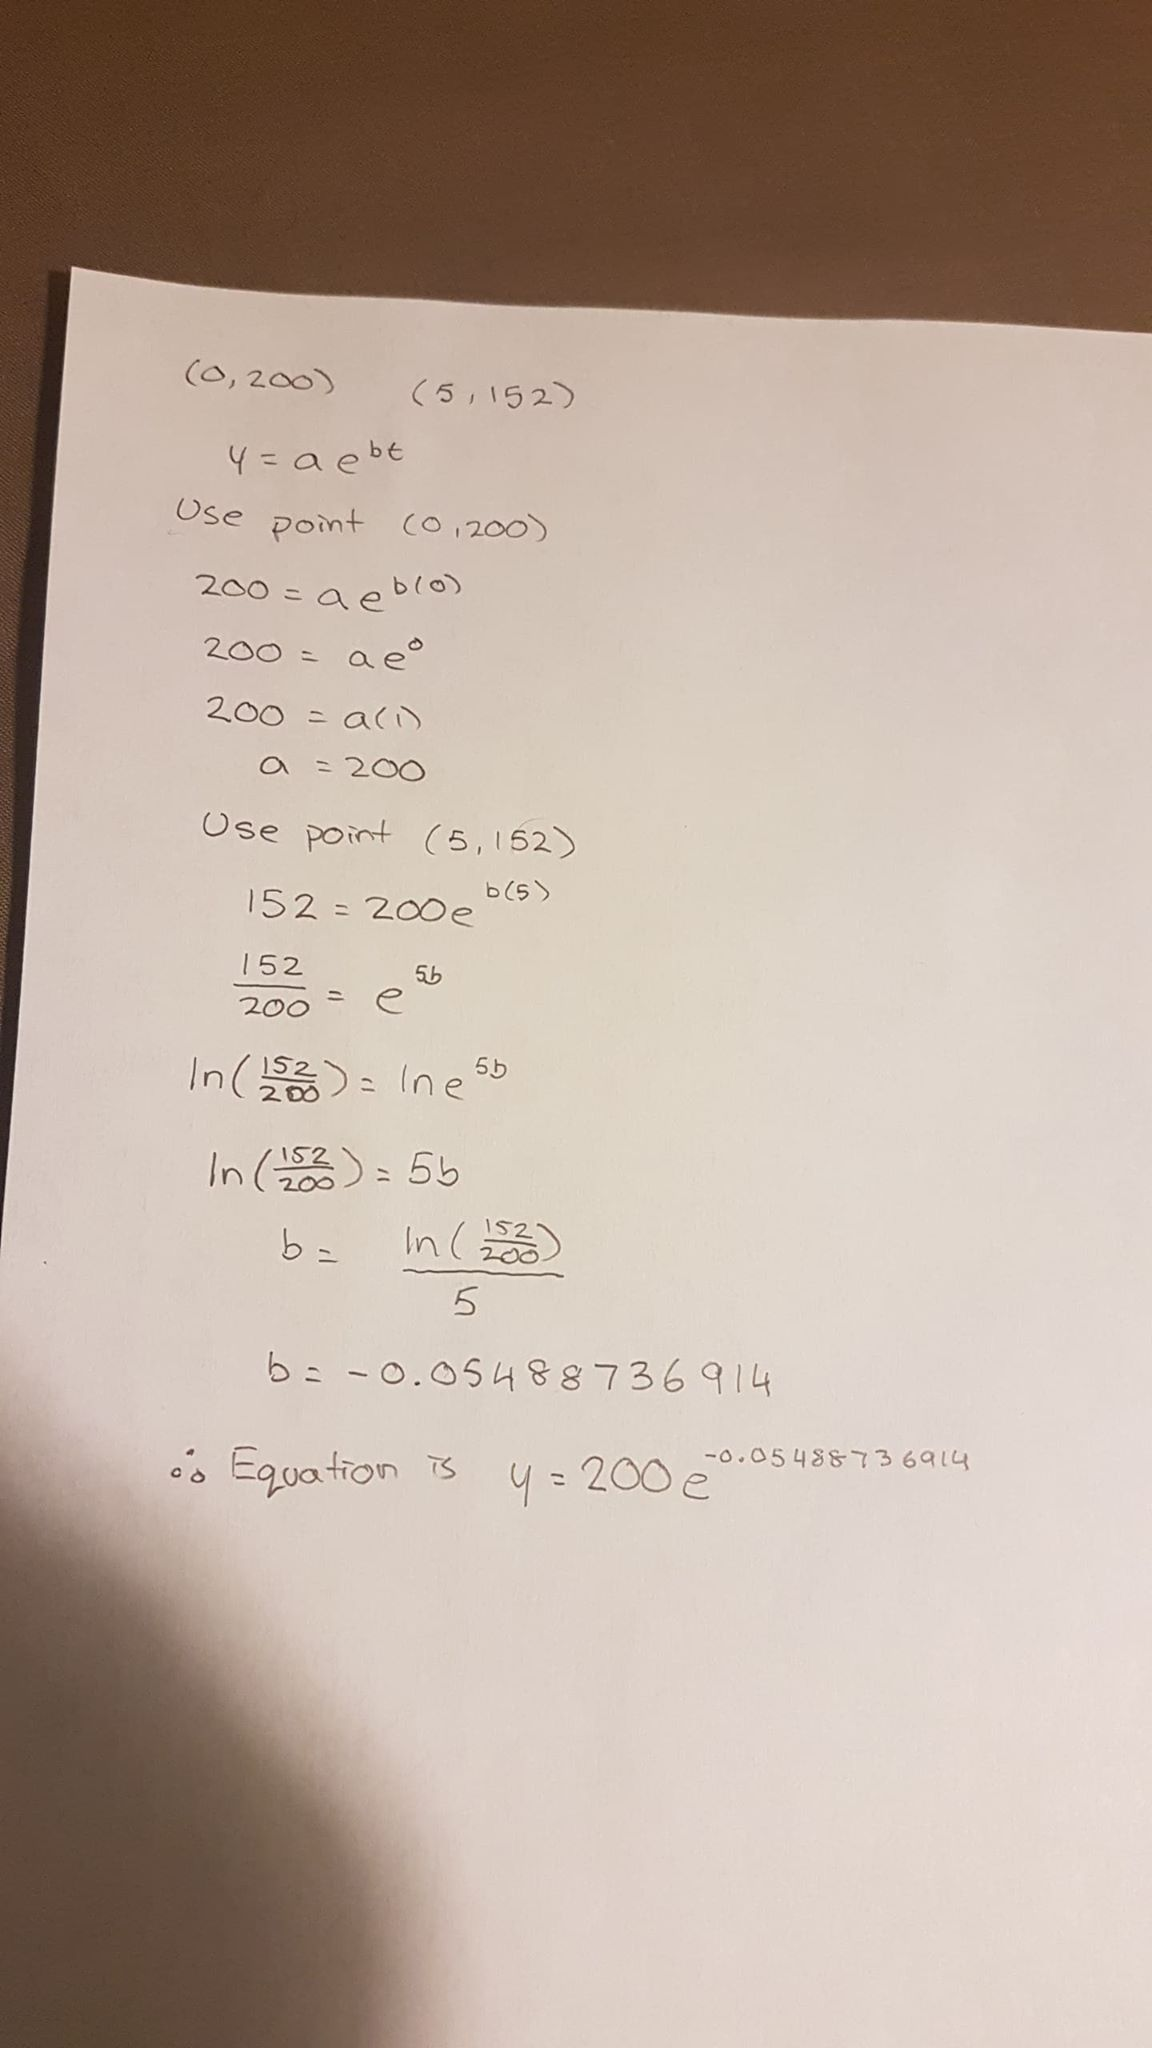 (0,200) (5,152)
y = a e^bt
Use point (0,200)
200 = a e^b(0)
200 = a e^0
200 = a(1)
a = 200
Use point (5,152)
152 = 200e^b(5)
152/200 = e^5b
ln(152/200) = ln e^5b
ln(152/200) = 5b
b = ln(152/200)/5
b = -0.05488736914
∴ Equation is y = 200e^-0.05488736914